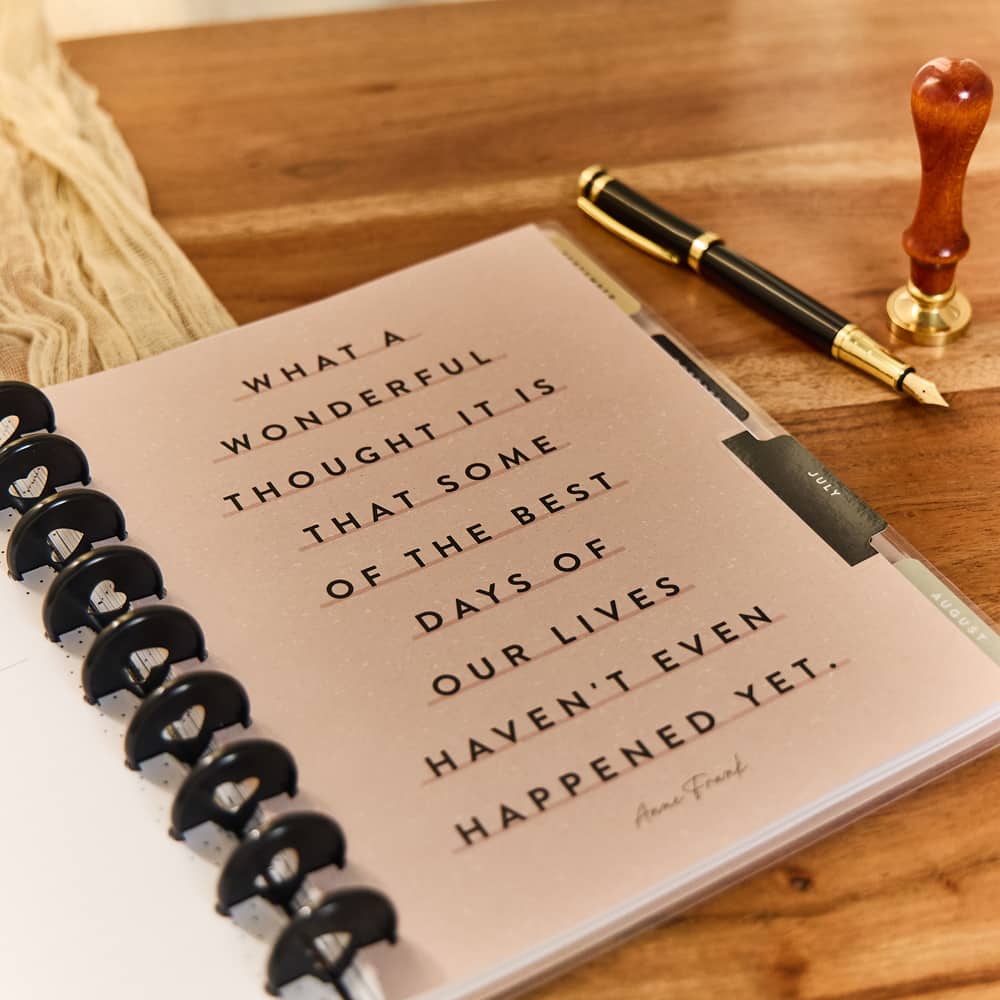 WHAT A
WONDERFUL
THOUGHT IT IS
THAT SOME
OF THE BEST
DAYS OF
OUR LIVES
HAVEN'T EVEN
HAPPENED YET.
Anne Frank
JULY
AUGUST